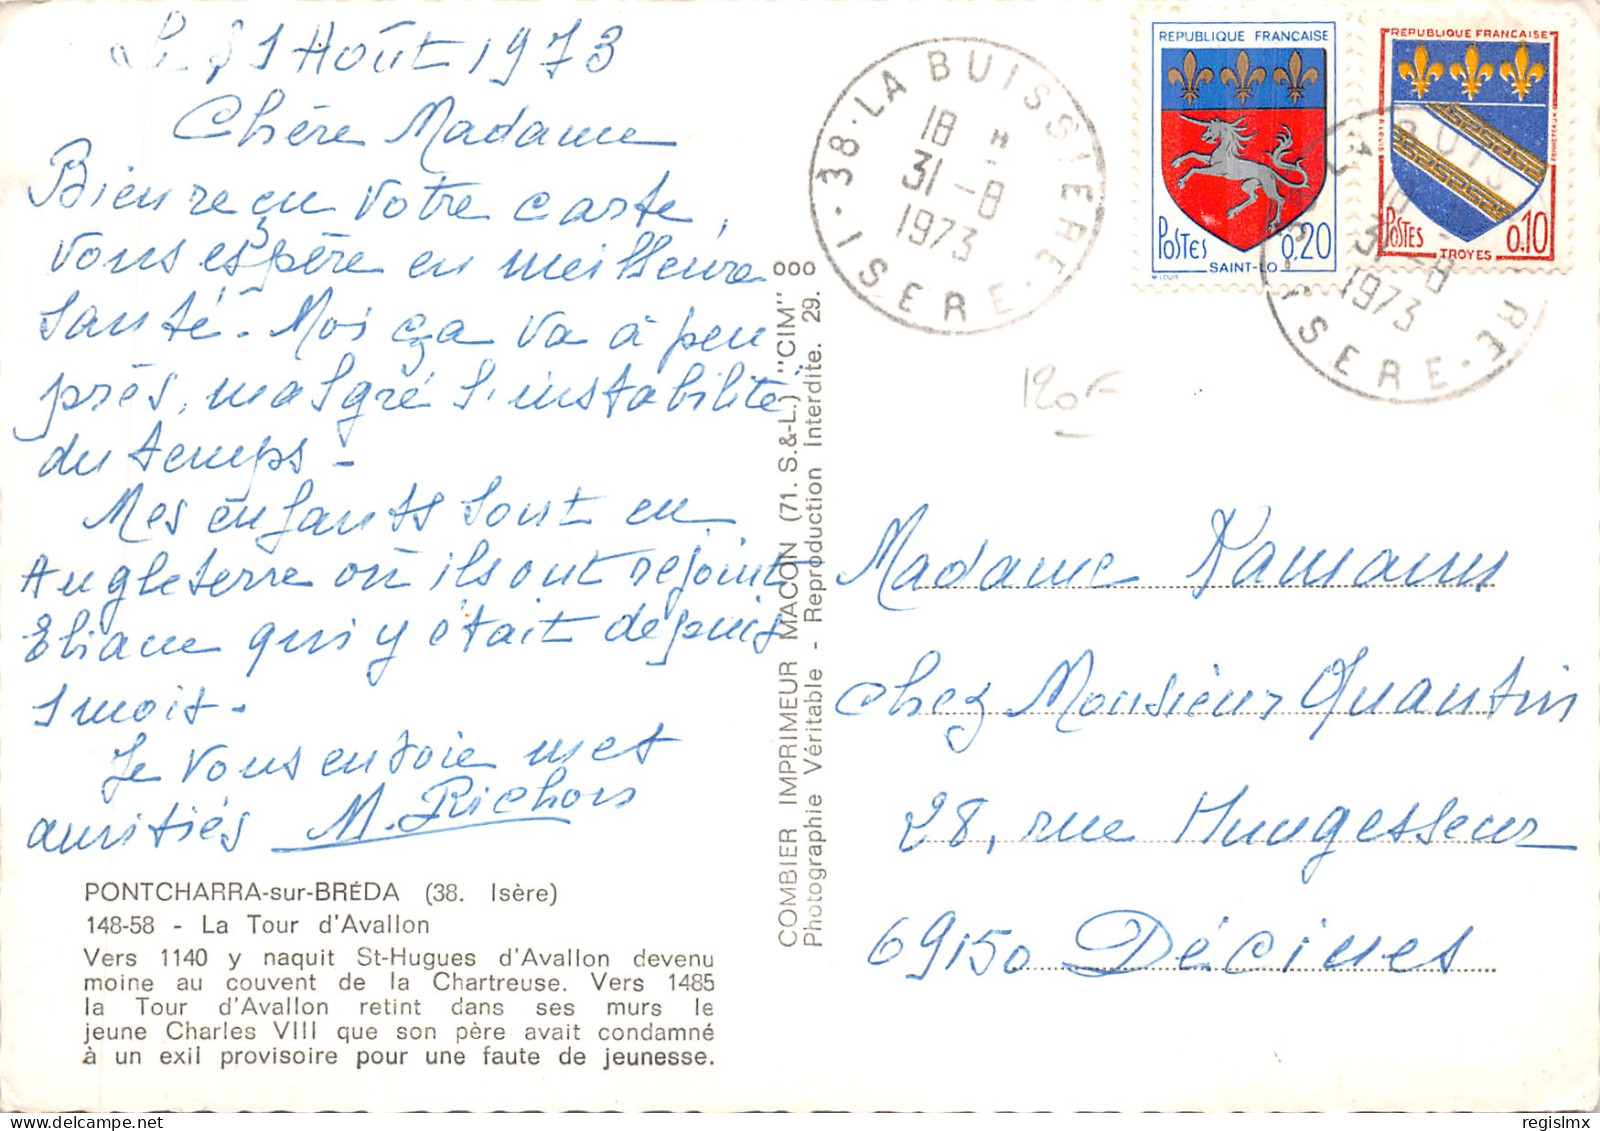 Le 31 Août 1973
Chère Madame
Bien reçu votre carte,
vous espère en meilleure
santé - Moi ça va à peu
près, malgré l'instabilité
du temps -
Mes enfants sont en
Angleterre où ils ont rejoint
Eliane qui y était depuis
1 mois -
Je vous envoie mes
amitiés M. Richors
PONTCHARRA-sur-BRÉDA (38. Isère)
148-58 - La Tour d'Avallon
Vers 1140 y naquit St-Hugues d'Avallon devenu
moine au couvent de la Chartreuse. Vers 1485
la Tour d'Avallon retint dans ses murs le
jeune Charles VIII que son père avait condamné
à un exil provisoire pour une faute de jeunesse.
COMBIER IMPRIMEUR MACON (71. S.&-L.) "CIM" 000
Photographie Véritable - Reproduction Interdite. 29.
38 - LA BUISSIERE - ISERE
18 H
31 -8
1973
REPUBLIQUE FRANÇAISE
POSTES 0,20
SAINT-LO
M. LOUIS
REPUBLIQUE FRANÇAISE
POSTES 0.10
TROYES
31 -8
1973
ISERE
120F
Madame Ramann
chez Monsieur Quantin
28, rue Hungesseur
69150 Décines
regislmx